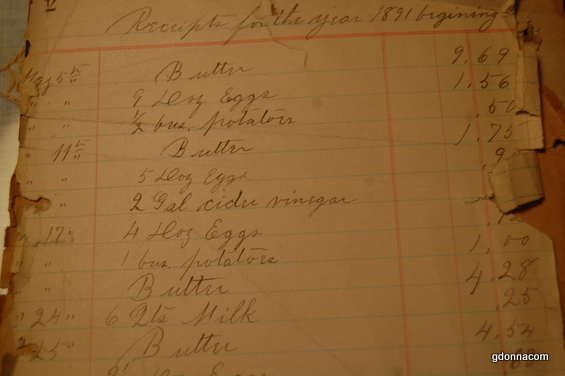 12
Receipts for the year 1891 begining
5th Butter 9.69
" " 9 Doz Eggs 1.56
" " ½ bus. potatoes .50
" 11th Butter 1.75
" " 5 Doz Eggs .9
" " 2 Gal cider vinegar
" 17 4 Doz Eggs .72
" " 1 bus. potatoes 1.00
" " Butter 4.28
" 24" 6 Qts Milk .25
" 25" Butter 4.54
Eggs
gdonnacom